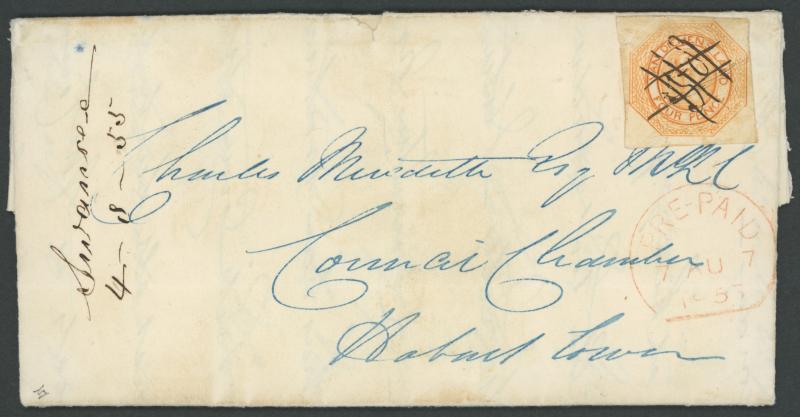 Swansea
4 - 8 - 55
VAN DIEMENS LAND
FOUR PENCE
Charles Meredith Esq MLC
Council Chamber
Hobart Town
PRE-PAID
7 AU 7
1855